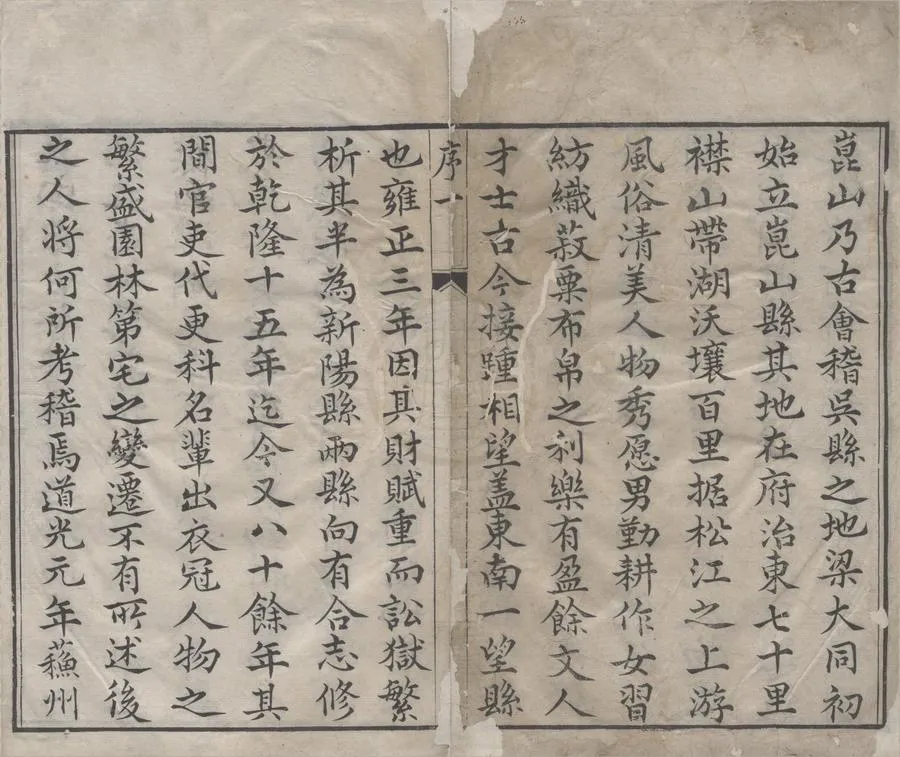 崑山乃古會稽吳縣之地梁大同初
始立崑山縣其地在府治東七十里
襟山帶湖沃壤百里据松江之上游
風俗清美人物秀愿男勤耕作女習
紡織菽粟布帛之利樂有盈餘文人
才士古今接踵相望盖東南一望縣
序一
也雍正三年因其財賦重而訟獄繁
析其半為新陽縣兩縣向有合志修
於乾隆十五年迄今又八十餘年其
間官吏代更科名輩出衣冠人物之
繁盛園林第宅之變遷不有所述後
之人将何所考稽焉道光元年蘓州